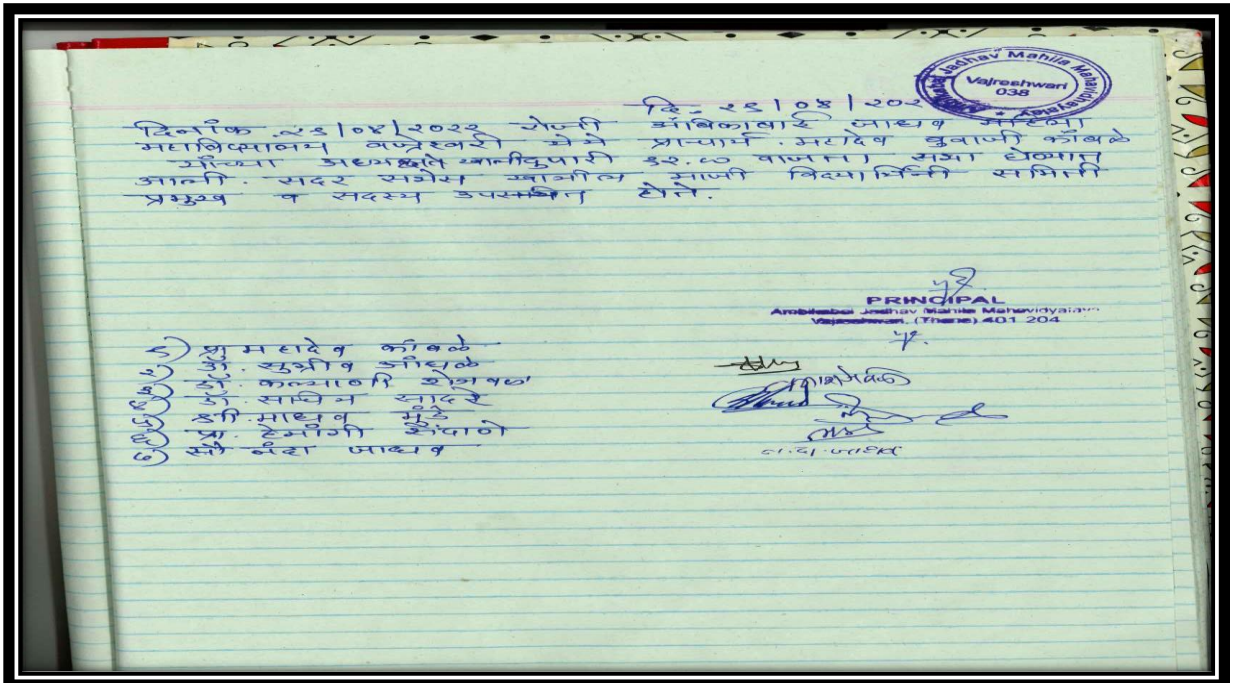 Jadhav Mahila Mahavidyalaya
Vajreshwari
038
दि. २६/०४/२०२
दिनांक .२६/०४/२०२२ रोजी अंबिकाबाई जाधव महिला
महाविद्यालय वज्रेश्वरी येथे प्राचार्य . महादेव बुवाजी कांबळे
यांच्या अध्यक्षते खाली दुपारी १२.०० वाजता सभा घेण्यात
आली . सदर सभेस खालील माजी विद्यार्थिनी समिती
प्रमुख व सदस्य उपस्थित होते.
PRINCIPAL
Ambikabai Jadhav Mahila Mahavidyalaya
Vajreshwari. (Thane) 401 204
१) प्रा महादेव कांबळे
२) डॉ. सुग्रीव आंधळे
३) डॉ. कल्याणी शेजवळ
४) डॉ. सचिन सादरे
५) श्री. माधव मुंडे
६) प्रा. हेमांगी सैंदाणे
७) सौ नंदा जाधव
न.दा.जाधव